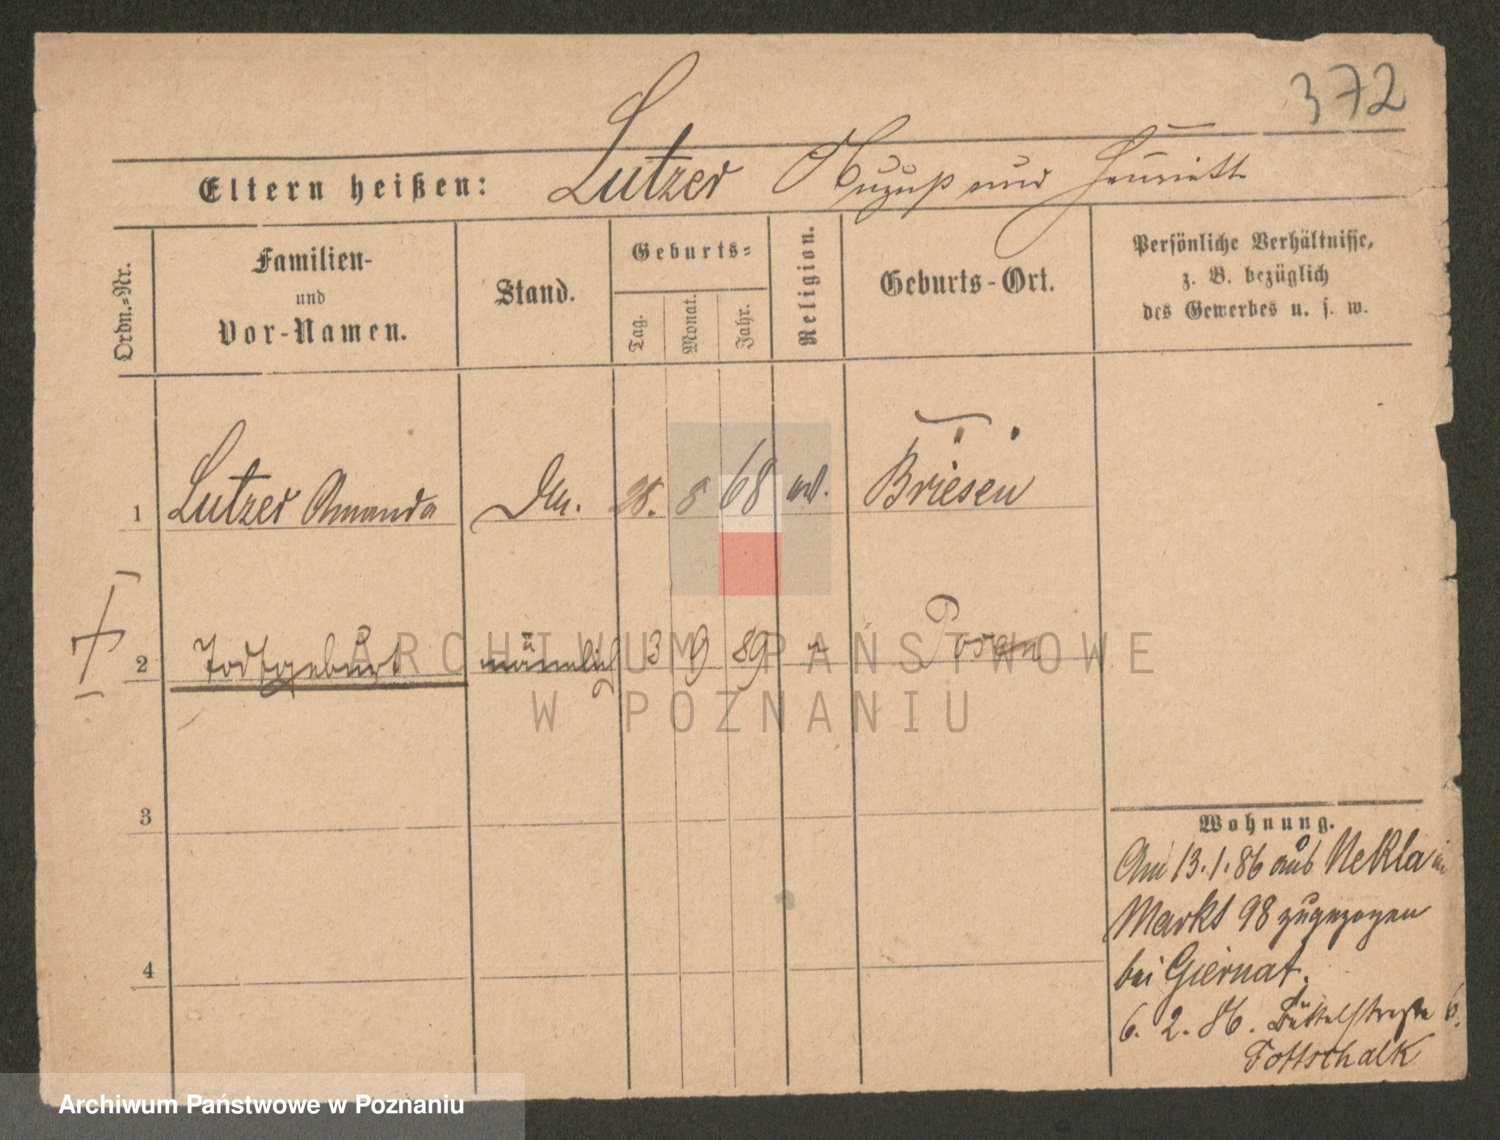 372
Eltern heißen: Lutzer und Henriette
Ordn.-Nr.
Familien-
und
Vor-Namen.
Stand.
Geburts-
Tag.
Monat.
Jahr.
Religion.
Geburts-Ort.
Persönliche Verhältnisse,
z. B. bezüglich
des Gewerbes u. s. w.
1 Lutzer Amanda 68 Briesen
2 Todtgeburt männlich 3 9 89 Posen
3
4
Wohnung.
Am 13.1.86 aus Nekla in
Markt 98 zugezogen
bei Giernat.
6. 2. 86. Büttelstraße 6.
ARCHIWUM PAŃSTWOWE
W POZNANIU
Archiwum Państwowe w Poznaniu